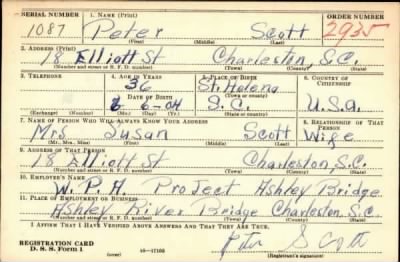 SERIAL NUMBER 1. NAME (Print) ORDER NUMBER
1087 Peter Scott 2935
(First) (Middle) (Last)
2. ADDRESS (Print)
18 Elliott St Charleston, S.C.
(Number and street or R. F. D. number) (Town) (County) (State)
3. TELEPHONE 4. AGE IN YEARS 5. PLACE OF BIRTH 6. COUNTRY OF CITIZENSHIP
36 St. Helena
DATE OF BIRTH (Town or county)
6-04 S.C. U.S.A.
(Exchange) (Number) (Mo.) (Day) (Yr.) (State or country)
7. NAME OF PERSON WHO WILL ALWAYS KNOW YOUR ADDRESS 8. RELATIONSHIP OF THAT PERSON
Mrs Susan Scott Wife
(Mr., Mrs., Miss) (First) (Middle) (Last)
9. ADDRESS OF THAT PERSON
18 Elliott St Charleston, S.C.
(Number and street or R. F. D. number) (Town) (County) (State)
10. EMPLOYER'S NAME
W.P.A. Project Ashley Bridge
11. PLACE OF EMPLOYMENT OR BUSINESS
Ashley River Bridge Charleston, S.C.
(Number and street or R. F. D. number) (Town) (County) (State)
I AFFIRM THAT I HAVE VERIFIED ABOVE ANSWERS AND THAT THEY ARE TRUE.
REGISTRATION CARD
D. S. S. Form 1 16-17105 Peter Scott
(over) (Registrant's signature)